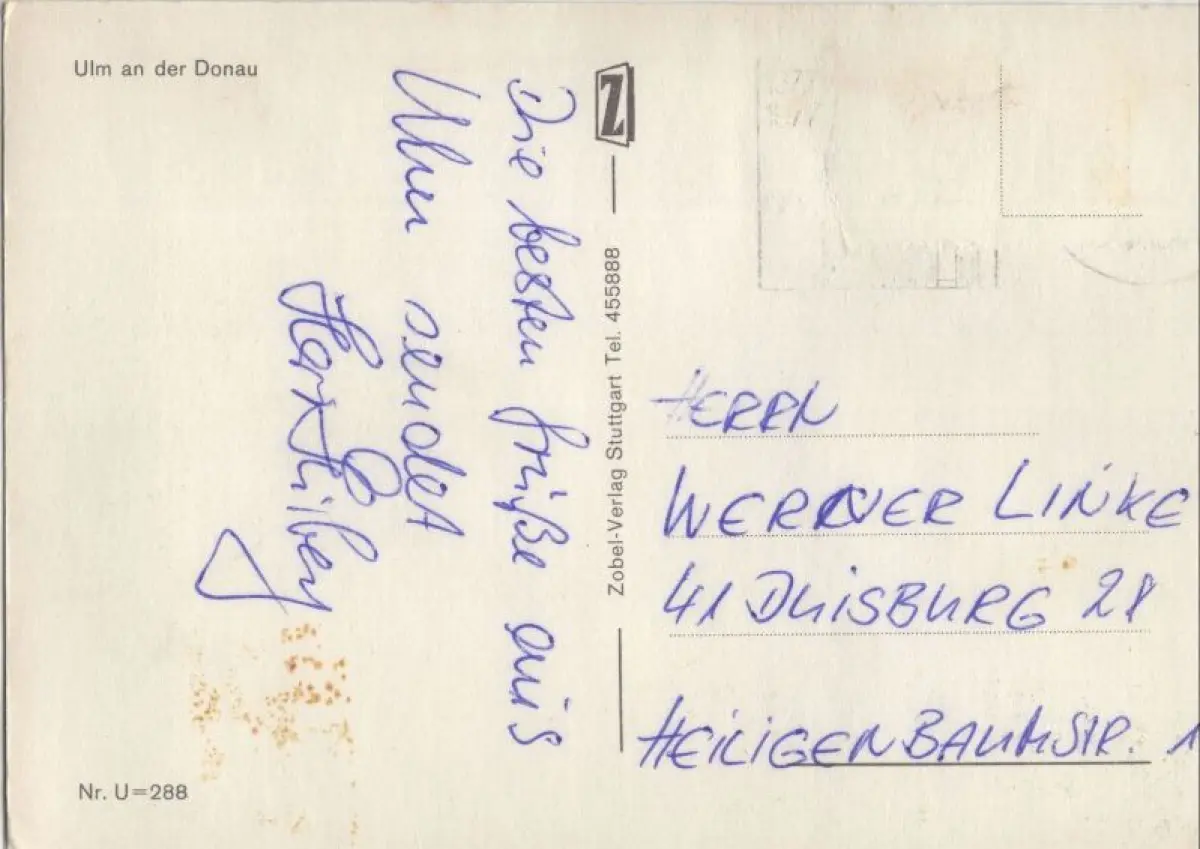 Ulm an der Donau
Die besten Grüße aus
Ulm sendet
Z
Zobel-Verlag Stuttgart Tel. 455888
HERRN
WERNER LINKE
41 DUISBURG 28
HEILIGENBAUMSTR. 1
Nr. U=288